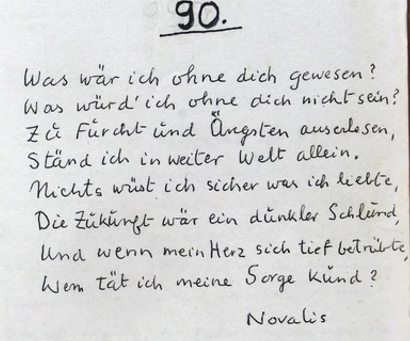 90.
Was wär ich ohne dich gewesen?
Was würd' ich ohne dich nicht sein?
Zu Furcht und Ängsten auserlesen,
Ständ ich in weiter Welt allein.
Nichts wüst ich sicher was ich liebte,
Die Zukunft wär ein dunkler Schlund,
Und wenn mein Herz sich tief betrübte,
Wem tät ich meine Sorge kund?
Novalis